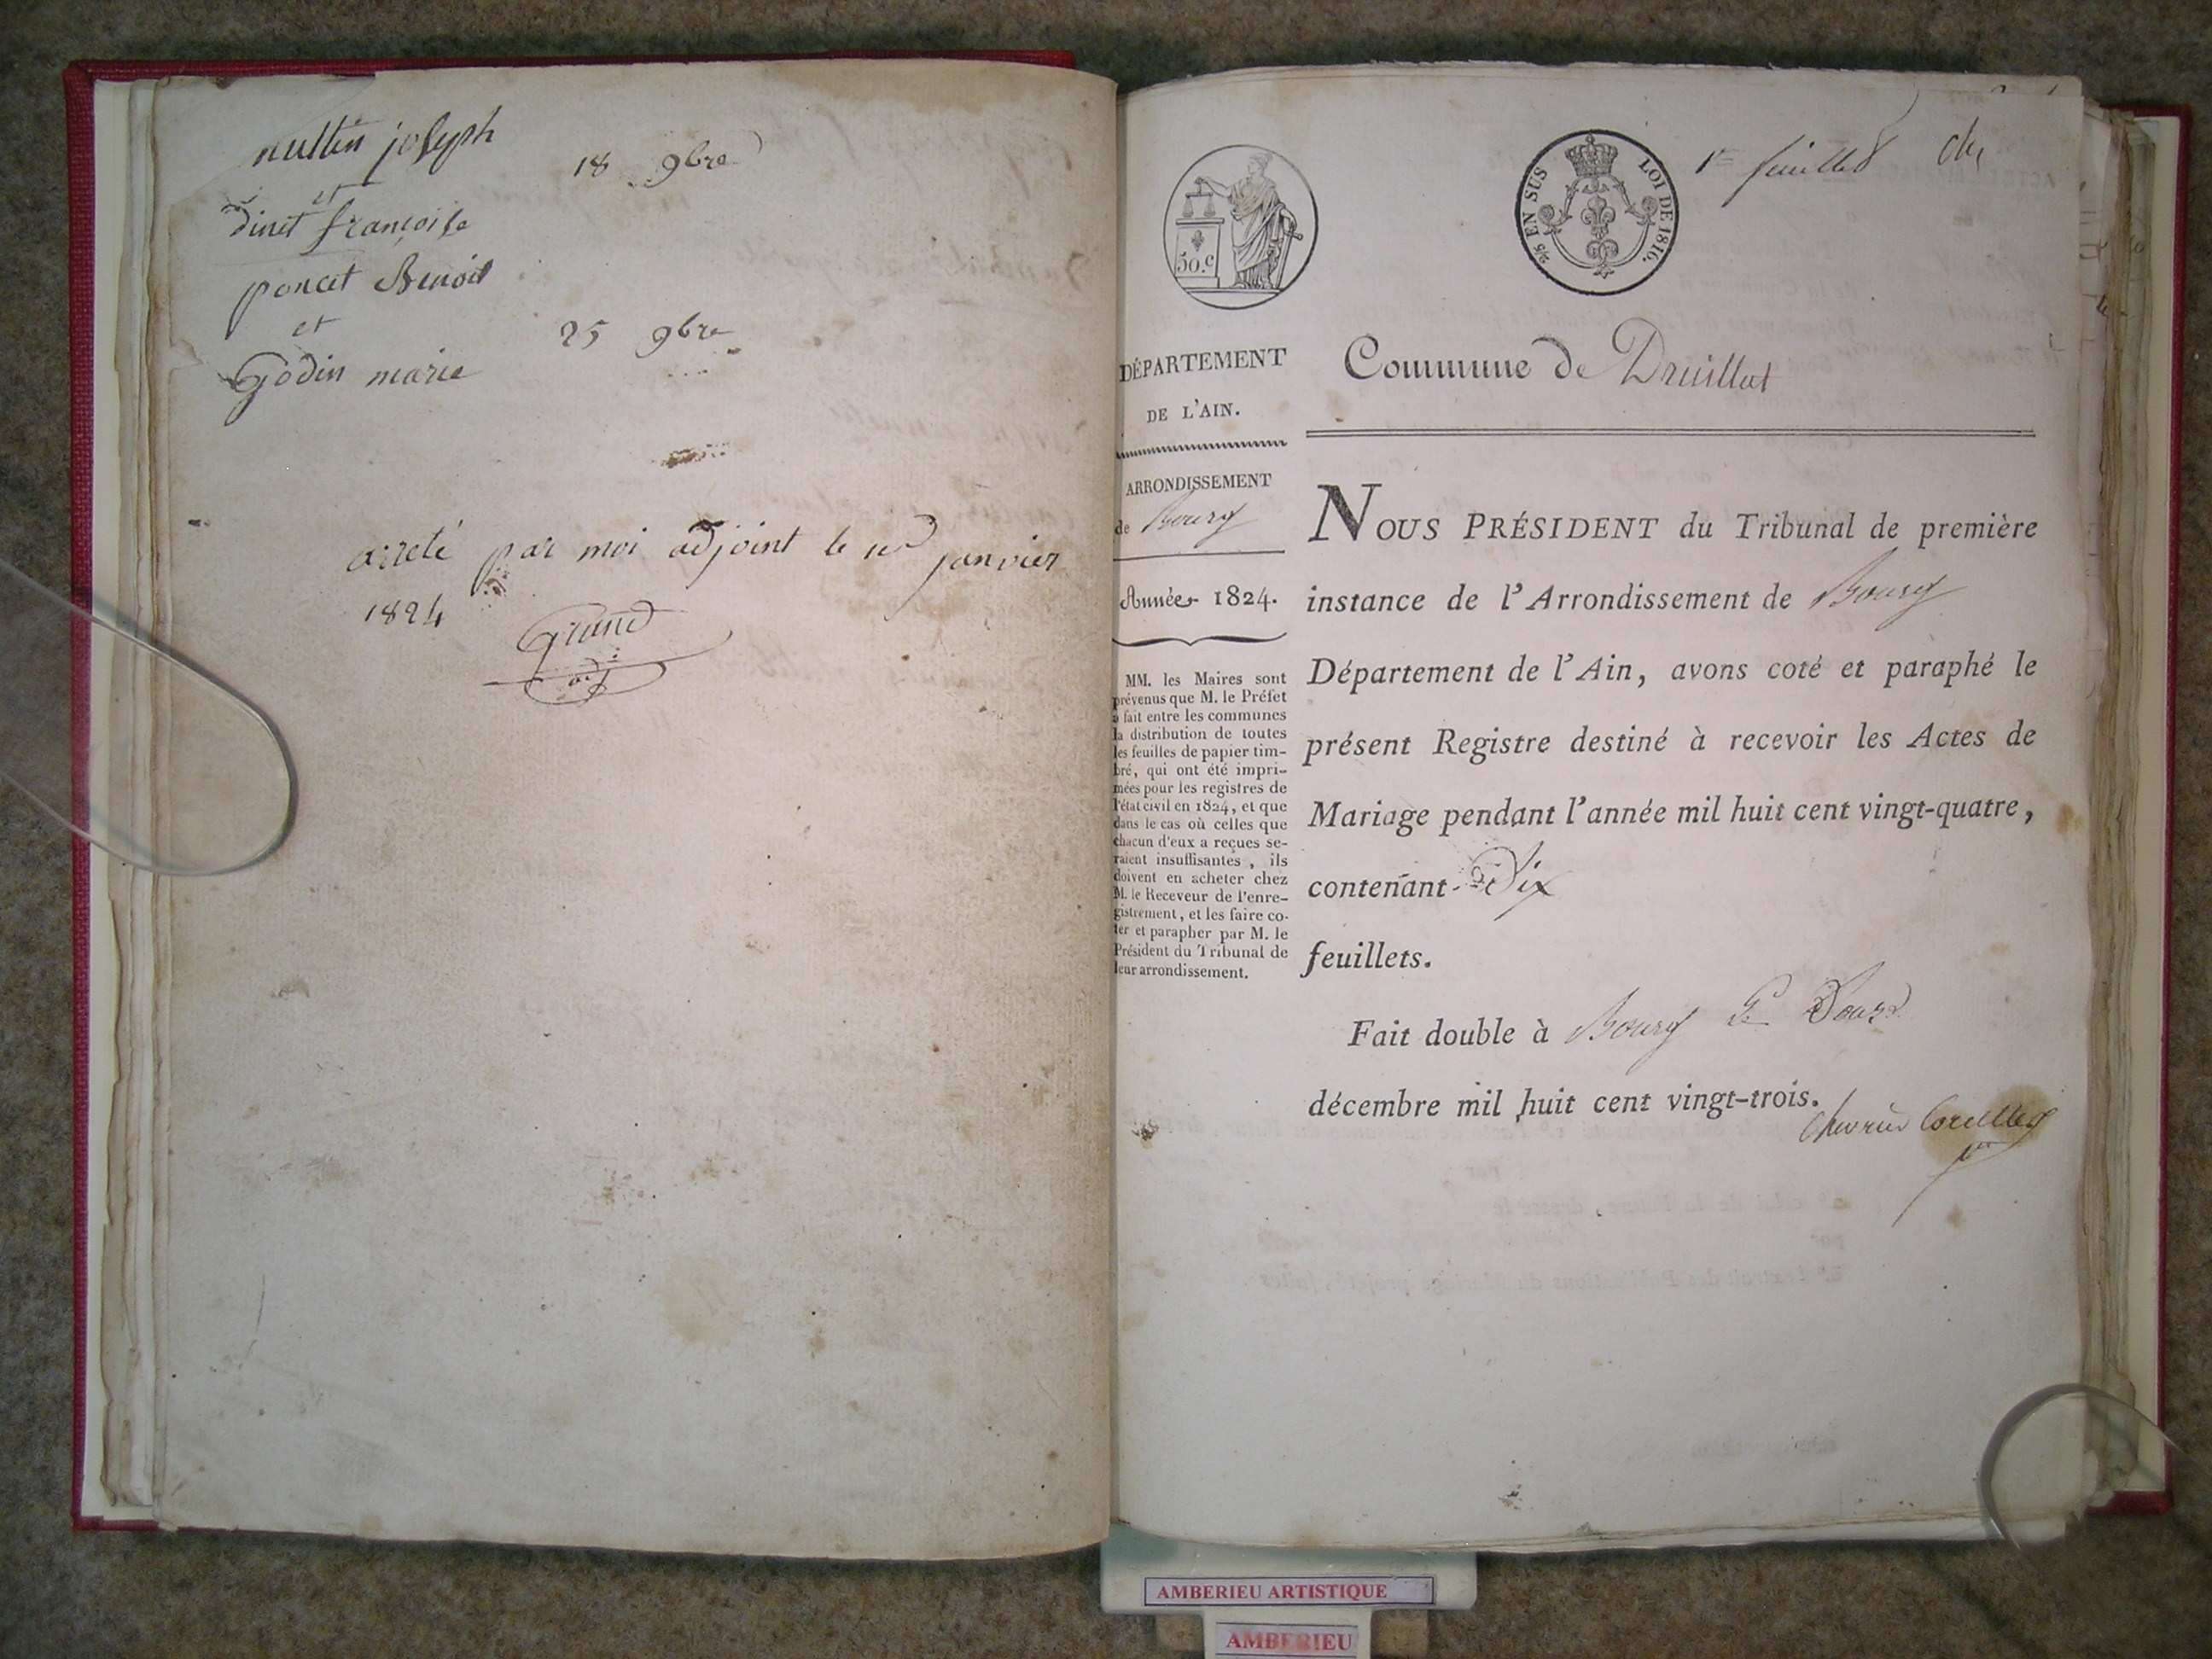 nullin joseph
18 9bre
et
dinet françoise
poncet Benoit
et
25 9bre
Godin marie
arreté par moi adjoint le 1er janvier
1824
Grand
adj
50.c
2/5 EN SUS LOI DE 1816.
1er feuillet
DÉPARTEMENT
DE L'AIN.
ARRONDISSEMENT
de Bourg
Année 1824.
MM. les Maires sont
prévenus que M. le Préfet
a fait entre les communes
la distribution de toutes
les feuilles de papier tim-
bré, qui ont été impri-
mées pour les registres de
l'état civil en 1824, et que
dans le cas où celles que
chacun d'eux a reçues se-
raient insuffisantes, ils
doivent en acheter chez
M. le Receveur de l'enre-
gistrement, et les faire co-
ter et parapher par M. le
Président du Tribunal de
leur arrondissement.
Commune de Druillat
NOUS PRÉSIDENT du Tribunal de première
instance de l'Arrondissement de Bourg
Département de l'Ain, avons coté et paraphé le
présent Registre destiné à recevoir les Actes de
Mariage pendant l'année mil huit cent vingt-quatre,
contenant Dix
feuillets.
Fait double à Bourg Le Douze
décembre mil huit cent vingt-trois.
AMBERIEU ARTISTIQUE
AMBERIEU